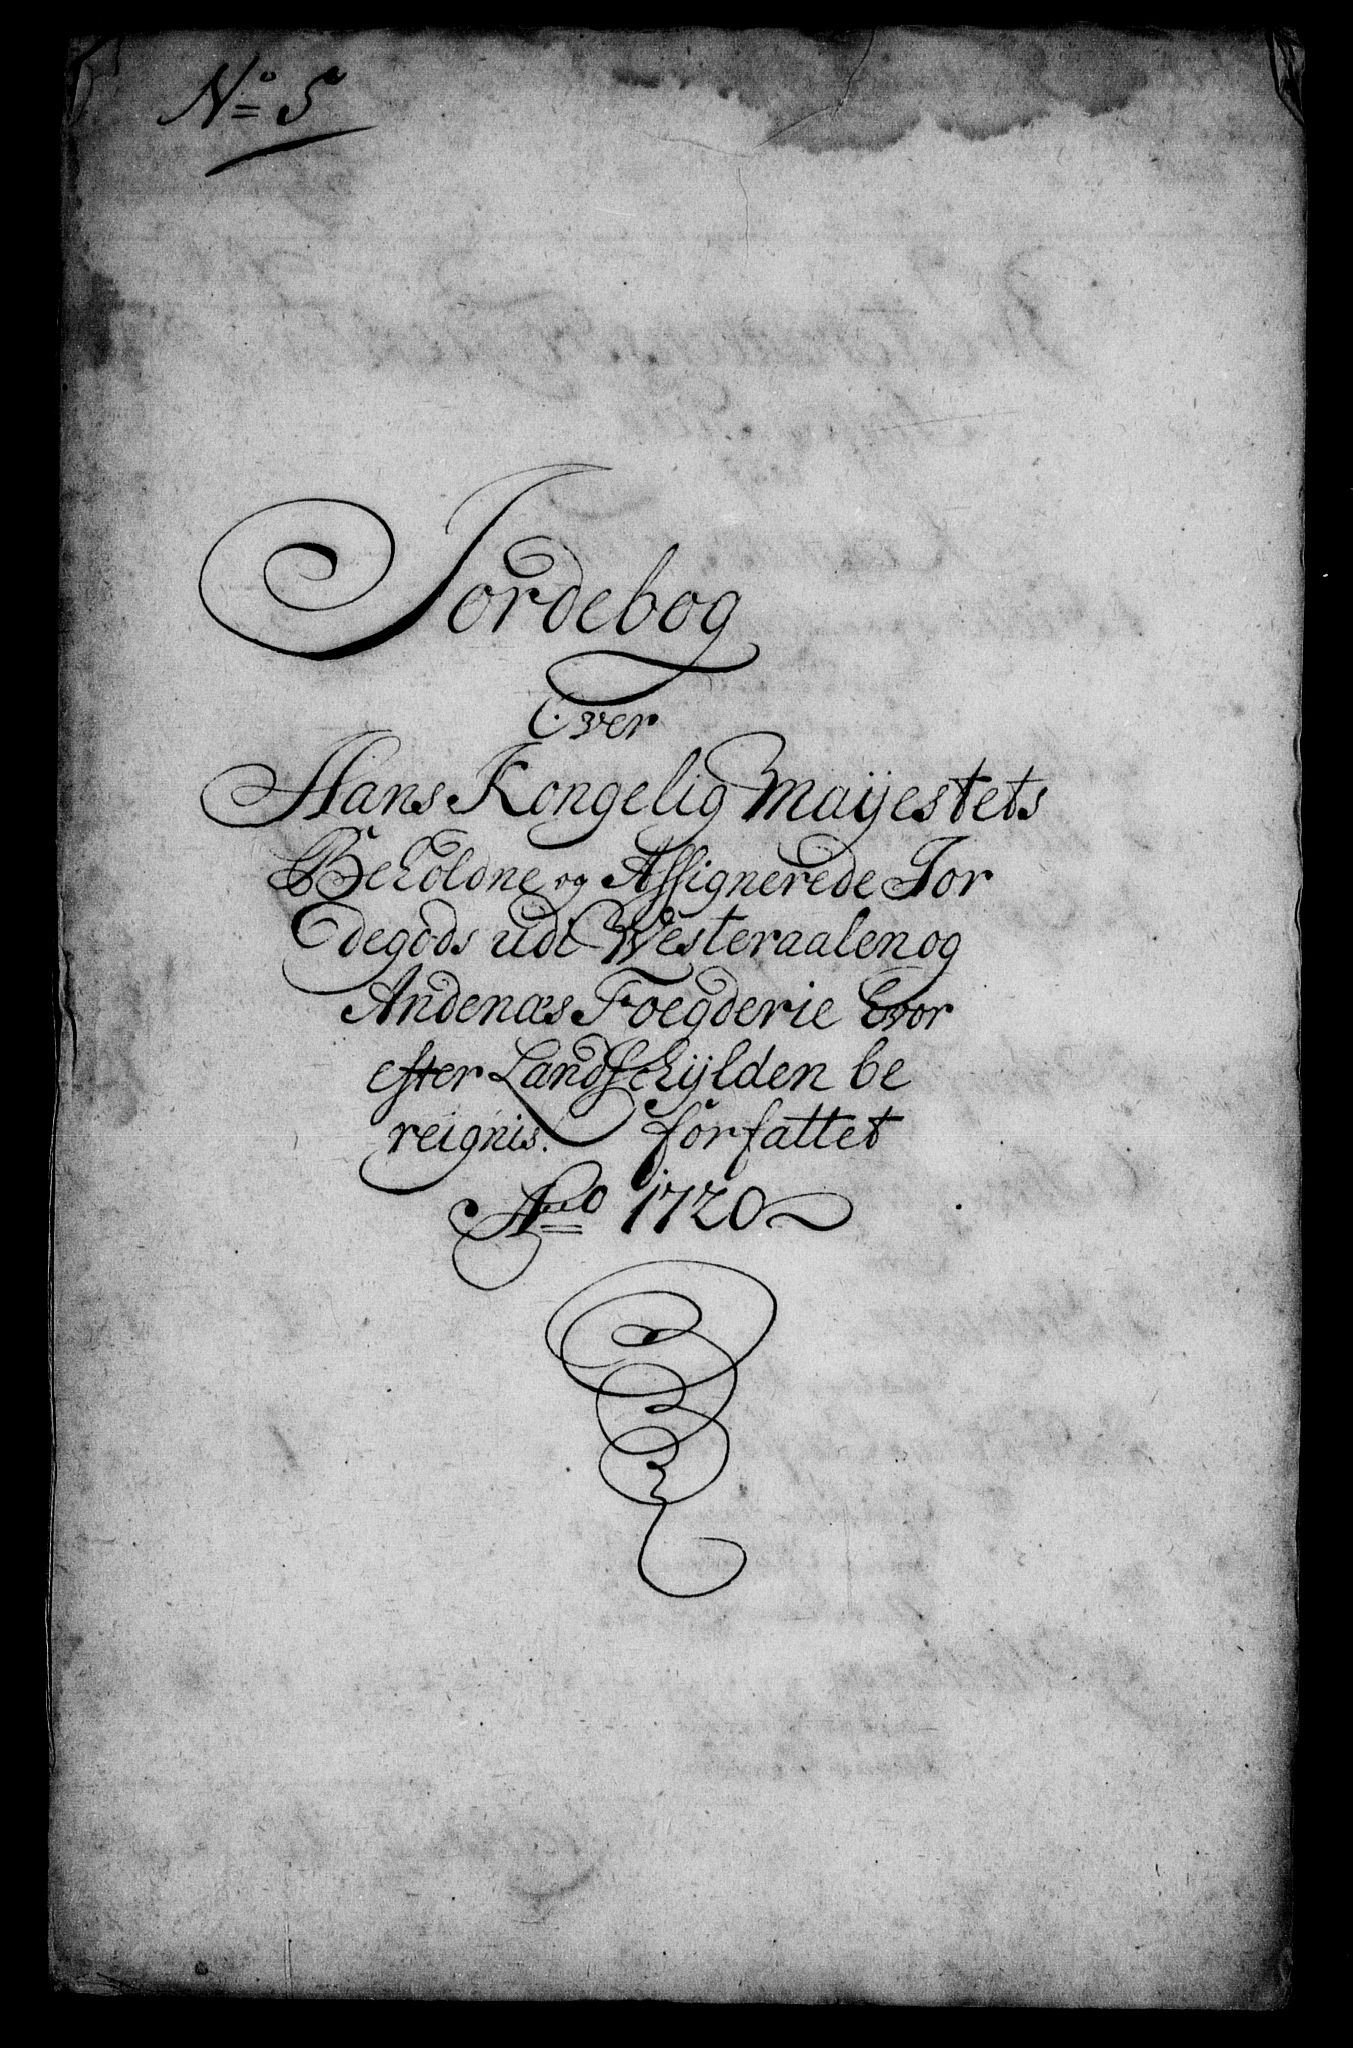 No 5
Jordebog
Over
Hans Kongelig Maijestets
Beholdne og Assignerede Jor
degods udi Westeraalen og
Andenæs Foegderie hvor
efter Landschijlden be
reignis. forfattet
Ano 1720